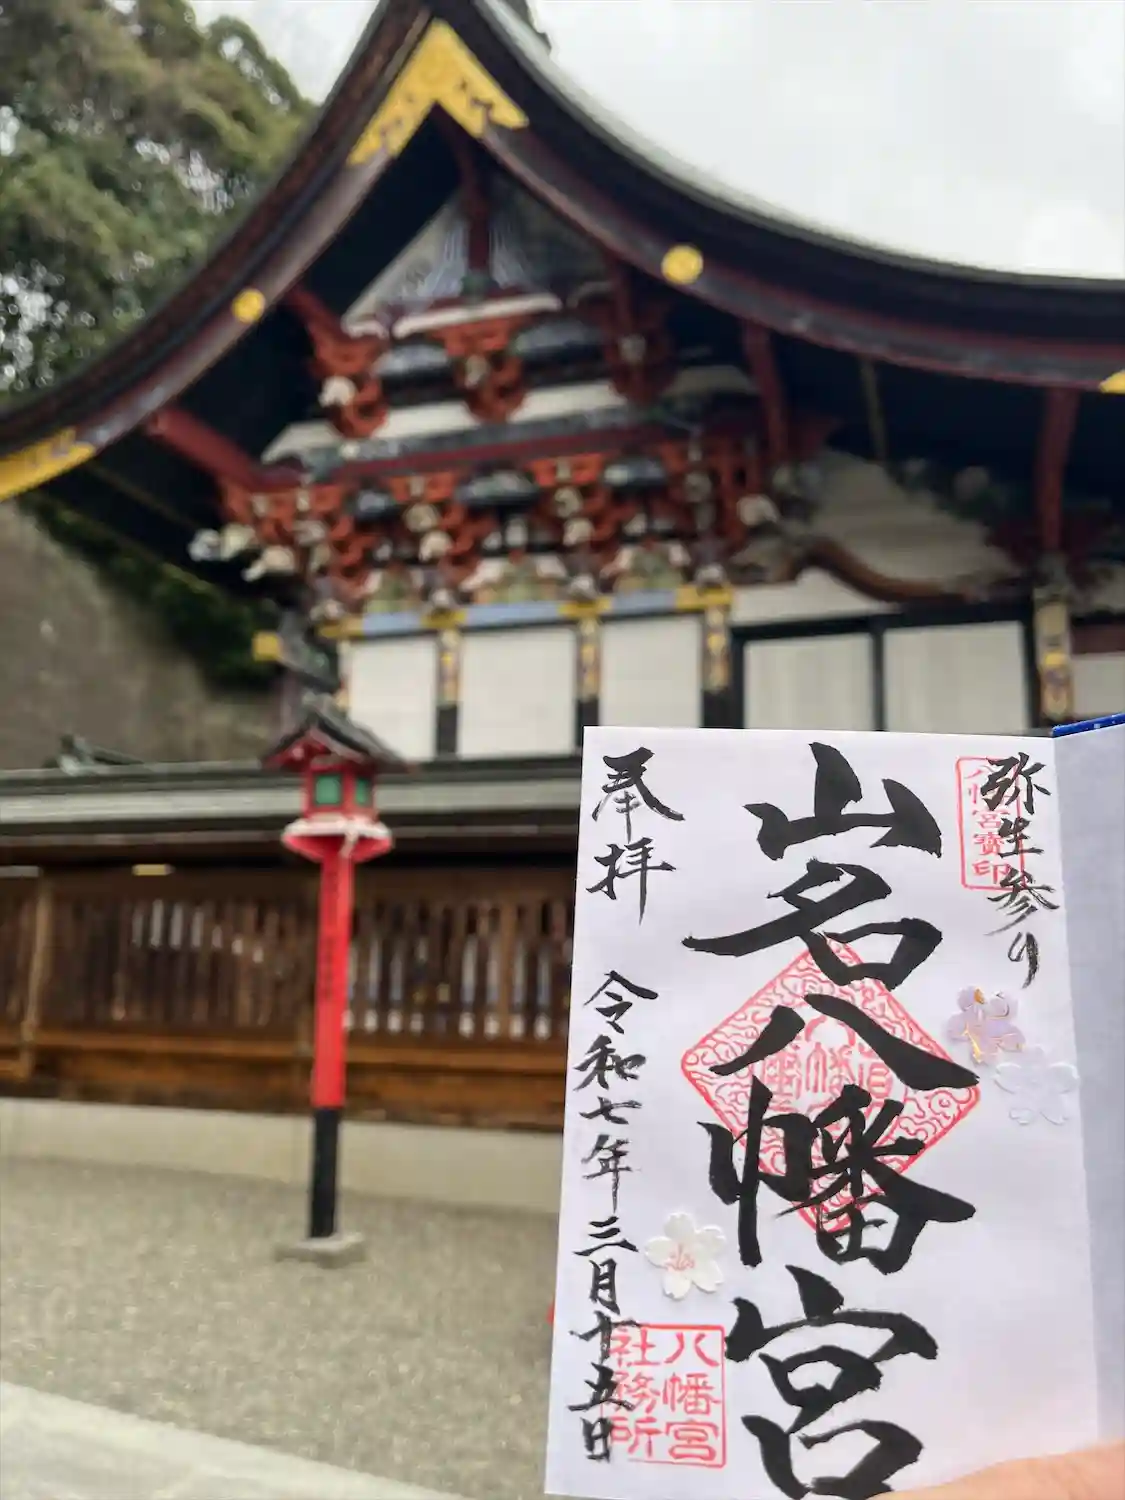 弥生参り
八幡宮寶印
山名八幡宮
奉拝
令和七年三月十五日
八幡宮
社務所